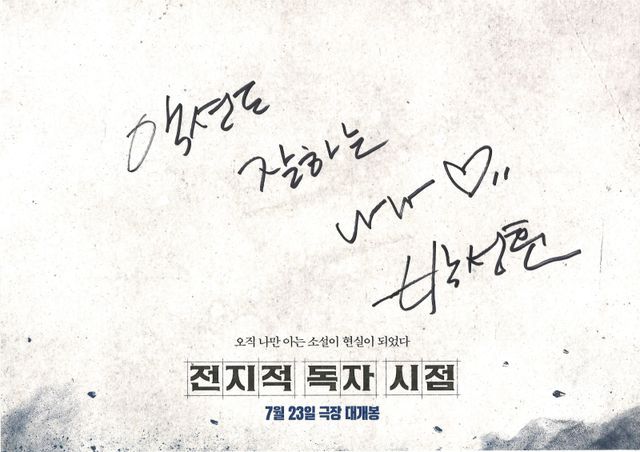 액션도
잘하는
나나 ♡,,
박성훈
오직 나만 아는 소설이 현실이 되었다
전지적 독자 시점
7월 23일 극장 대개봉